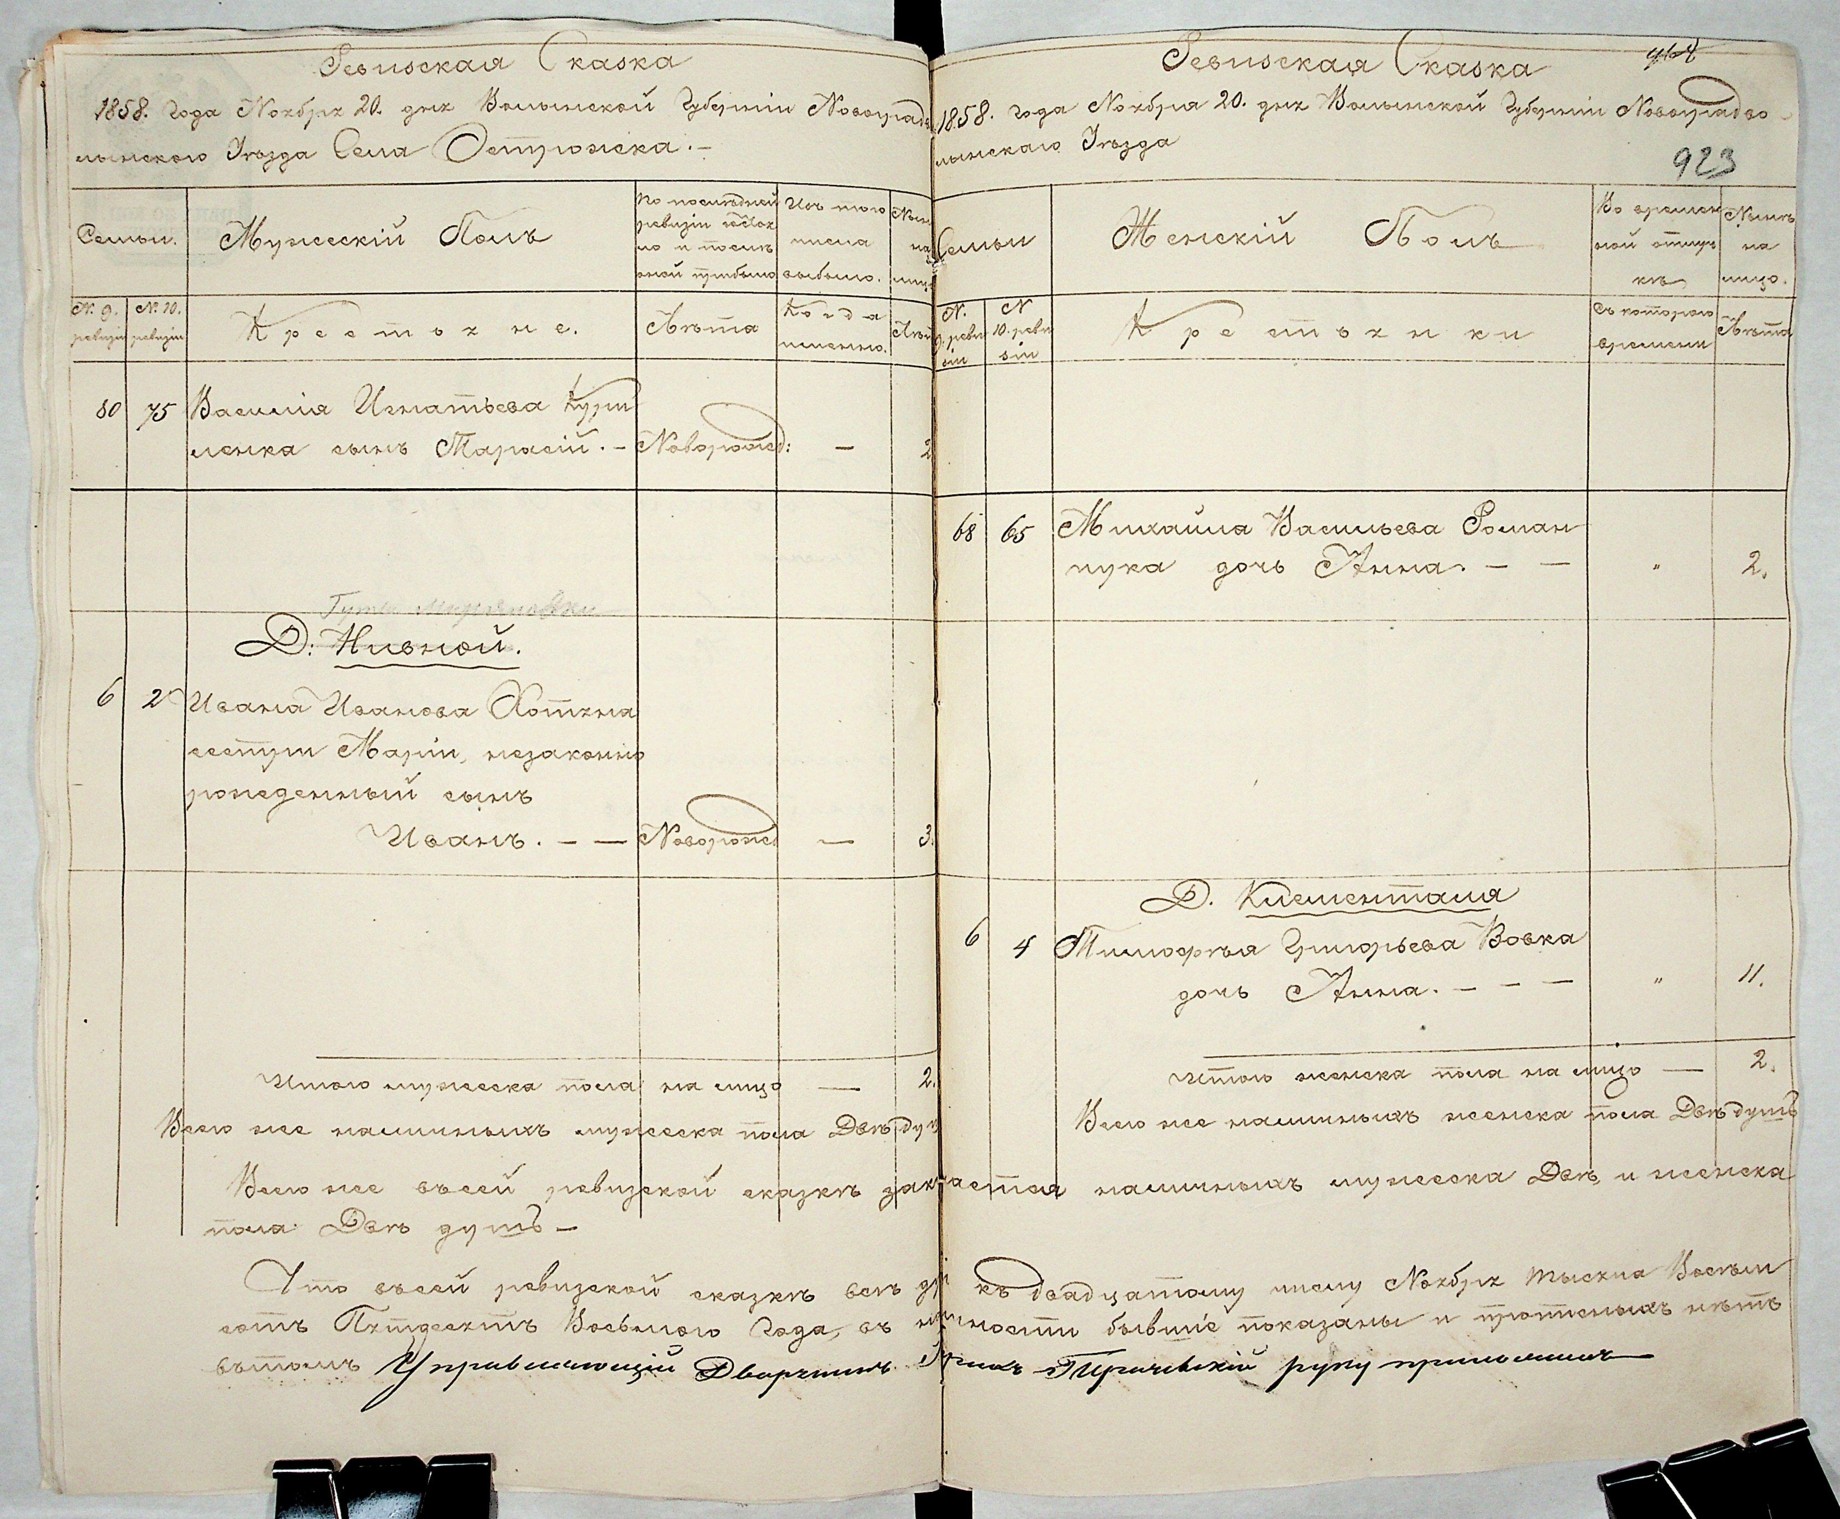 Ревизская Сказка
1858. года Ноября 20. дня Волынской Губерніи Новоградво
лынского Уѣзда Села Остромска. –
Семьи.
Мужескій Полъ
По послѣдней
ревизіи состоя
ло и послѣ
оной прибыло
Изъ того
числа
выбыло.
Нынѣ
на
лицо
№. 9.
ревизіи
№. 10.
ревизіи
Крестьяне.
Лѣта
Когда
именно.
Лѣта
80 75 Василія Игнатьева
ленка сынъ Тарасій. – Новорожд: — 2
Д: Нивной.
6 2 Ивана Иванова Хотина
сестры Маріи, незаконно
рожденный сынъ
Иванъ. – — Новорожд — 3.
Итого мужеска пола на лицо — 2.
Всего же наличныхъ мужеска пола Двѣ душ
Ревизская Сказка
923
1858. года Ноября 20. дня Волынской Губерніи Новоградво
лынскаго Уѣзда
Семьи
Женскій Полъ
Во времен
ной отлуч
кѣ
Нынѣ
на
лицо.
№.
9. реви
зіи
№
10. реви
зіи
Крестьянки
Съ котораго
времени
Лѣта
68 65 Михайла Васильева Роман
чука дочь Анна. – — " 2.
Д. Клементаля
6 4 Тимофѣя Григорьева Вовка
дочь Анна. – – — " 11.
Итого женска пола на лицо — 2.
Всего же наличныхъ женска пола Двѣ душъ
Всего же въсей ревизской сказкѣ значается наличныхъ мужеска Двѣ и женска
пола Двѣ душъ –
Что въсей ревизской сказкѣ всѣ къ двадцатому числу Ноября тысяча Восѣм
сотъ Пятдесятъ Восьмого Года, въ бывшіе показаны и прописныхъ нѣтъ
вътомъ Управляющій Дворянинъ руку приложилъ